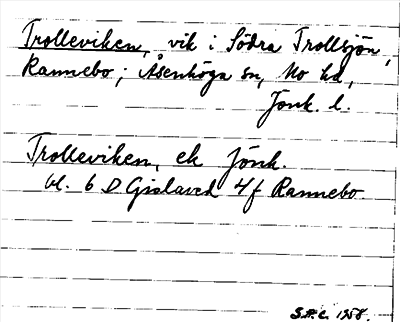 Trolleviken, vik i Södra Trollsjön,
Rannebo; Åsenhöga sn, Mo hd,
Jönk. l.
Trolleviken, ek Jönk.
bl. 6 D Gislaved 4f Rannebo
S.H.C. 1958.